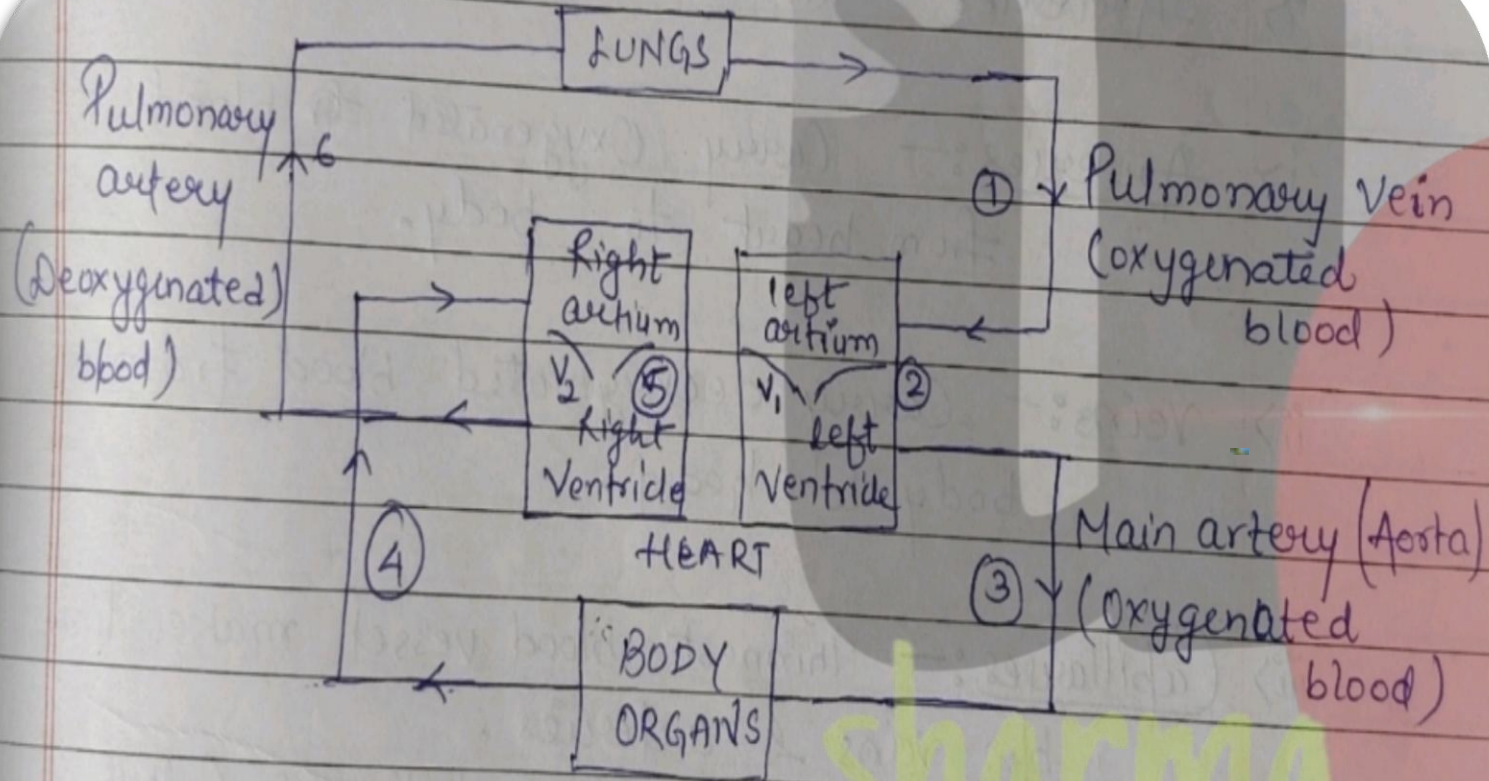 LUNGS
Pulmonary
artery
(Deoxyginated)
blood)
6
① Pulmonary Vein
(oxyginated
blood)
Right
artium
V2 ⑤
Right
Ventricle
left
artium
V1 ②
left
Ventricle
HEART
④
③ Main artery (Aorta)
(Oxygenated
blood)
BODY
ORGANS
sharma